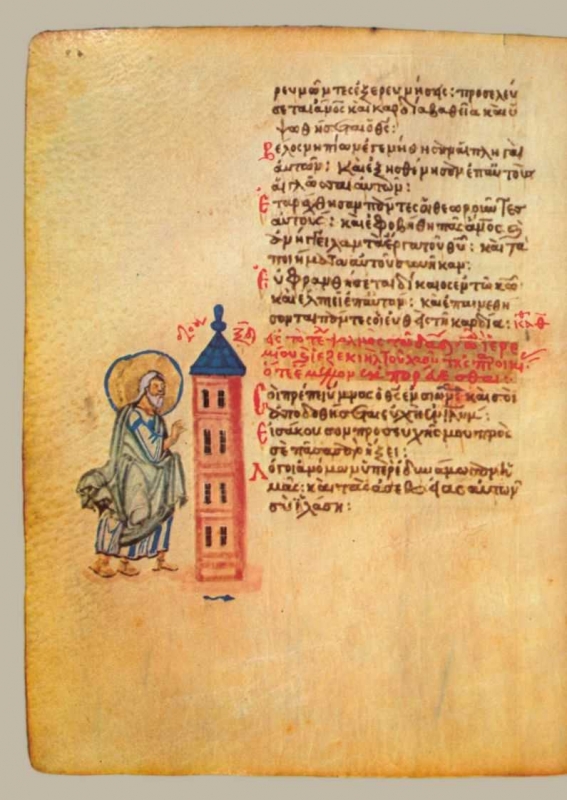 ρευνῶντες ἐξερευνήσεις: προσελεύ
σεται ἄνος καὶ καρδία βαθεῖα καὶ ὑ
ψωθήσεται ὁ θς:
Βέλος νηπίων ἐγενήθησαν αἱ πληγαὶ
αὐτῶν: καὶ ἐξησθένησαν ἐπ αὐτοὺς
αἱ γλῶσσαι αὐτῶν:
Ἐταράχθησαν πάντες οἱ θεωροῦντες
αὐτούς: καὶ ἐφοβήθη πᾶς ἄνος καὶ
ἀνήγγειλαν τὰ ἔργα τοῦ θυ: καὶ τὰ
ποιήματα αὐτοῦ συνῆκαν:
Εὐφρανθήσεται δίκαιος ἐν τῷ κω
καὶ ἐλπιεῖ ἐπ αὐτόν: καὶ ἐπαινεθή
σονται πάντες οἱ εὐθεῖς τῇ καρδία:
ΞΔ
εἰς τὸ τέλος ψαλμὸς τῷ δαδ ᾠδὴ ἱερε
μίου καὶ ἰεζεκιὴλ τοῦ λαοῦ τῆς παροικί
ὅτε ἔμελλον ἐκπορεύεσθαι:
Σοὶ πρέπει ὕμνος ὁ θς ἐν σιών: καὶ σοὶ
ἀποδοθήσεται εὐχὴ ἐν ἱλημ:
Εἰσάκουσον προσευχῆς μου πρὸς
σὲ πᾶσα σὰρξ ἥξει:
Λόγοι ἀνόμων ὑπερεδυνάμωσαν ἡ
μᾶς: καὶ ταῖς ἀσεβείαις αὐτῶν
σὺ ἱλάση: